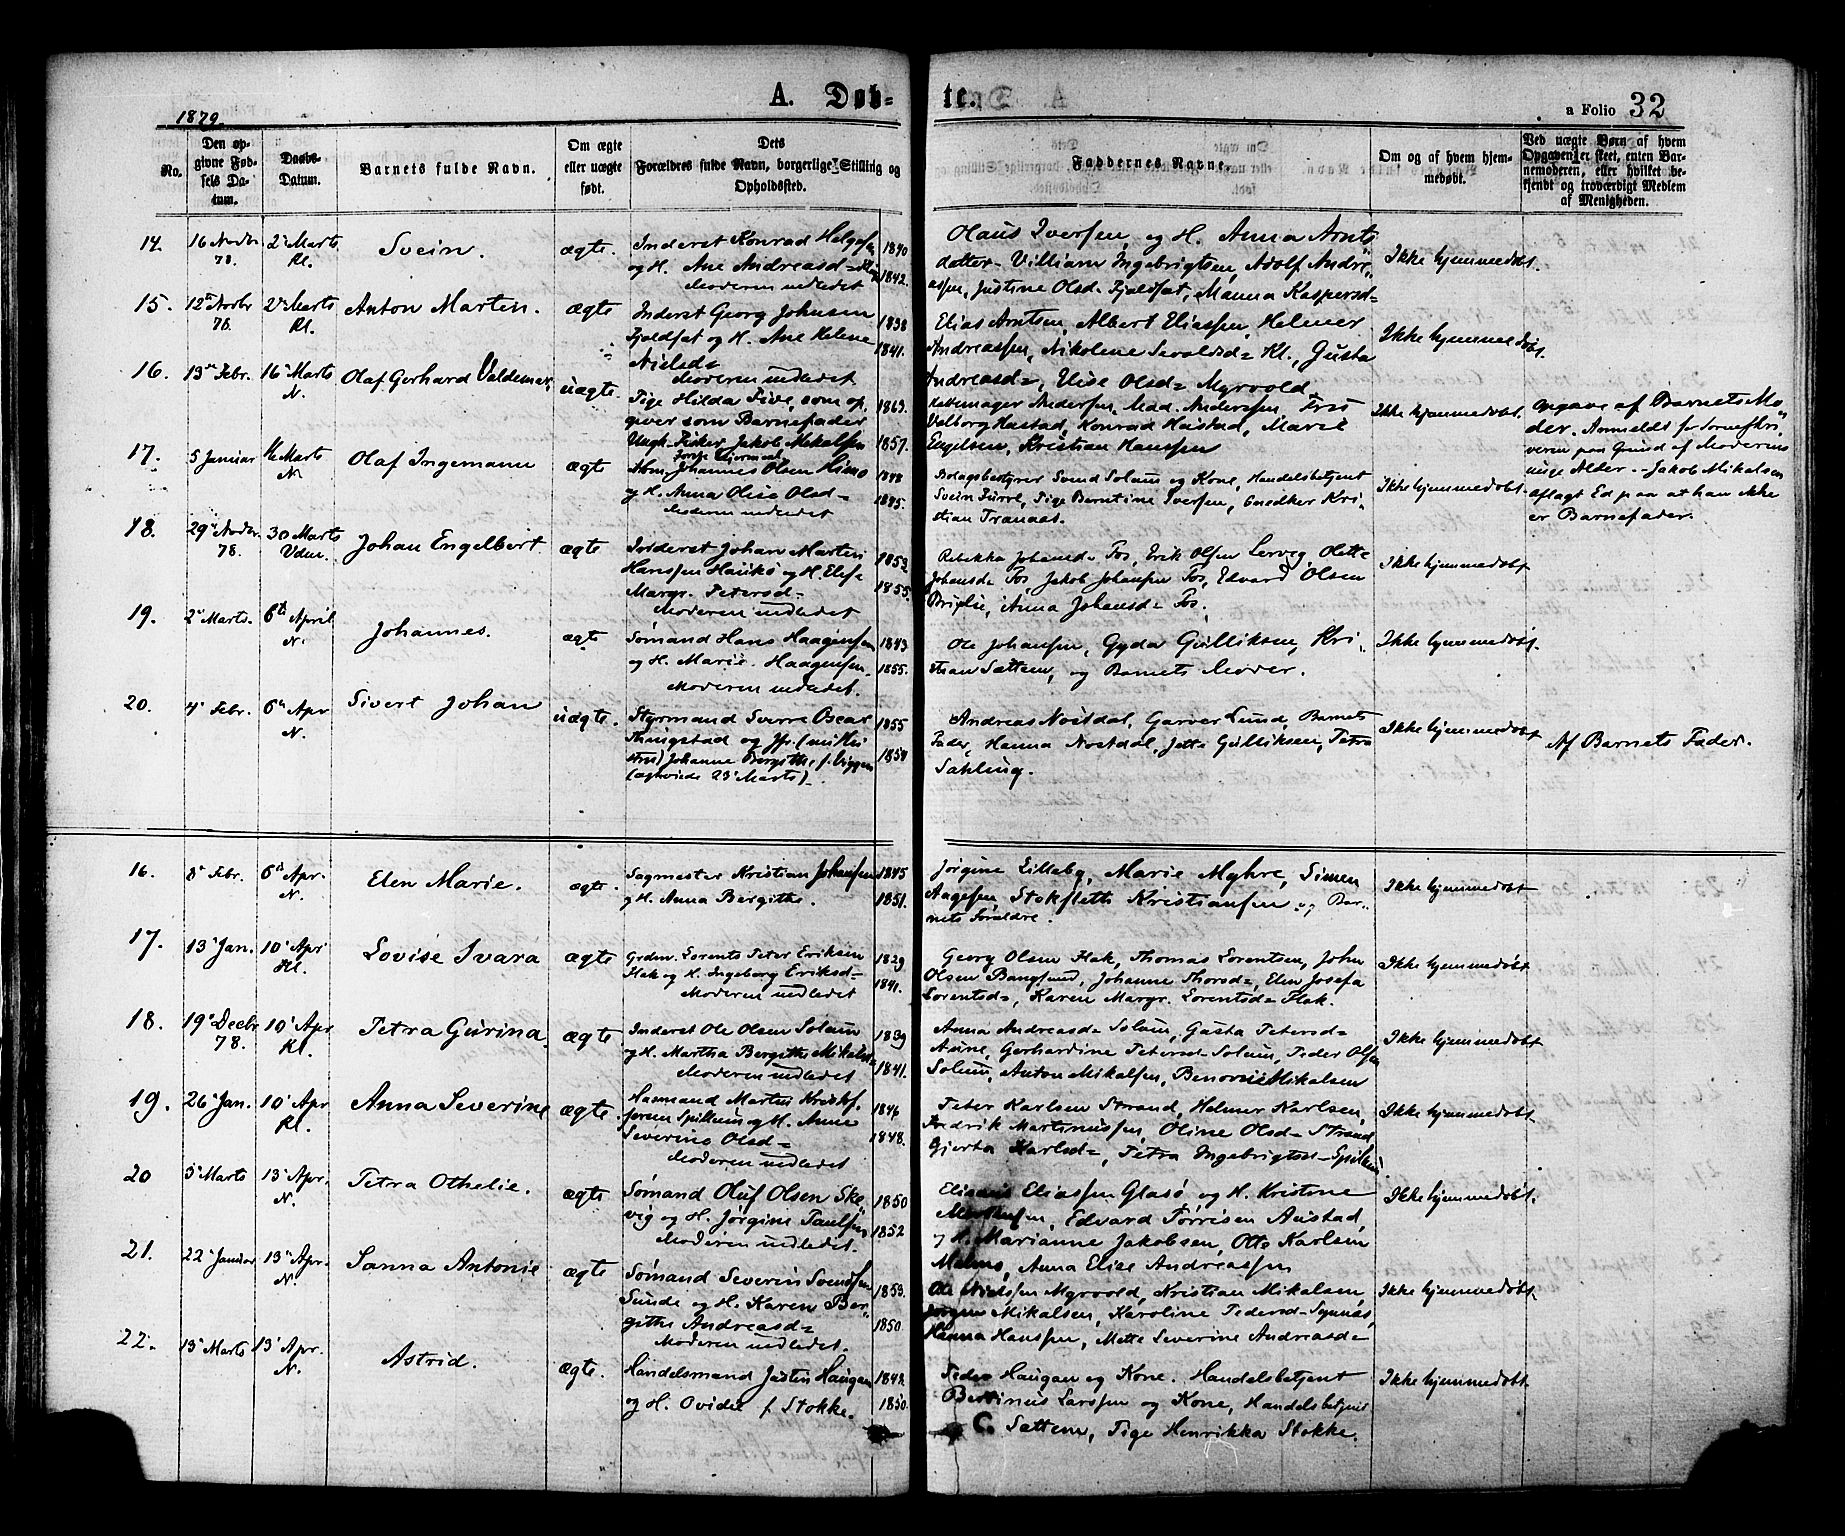 1879.
A. Døb-
te.
a Folio 32
No.
Den op-
givne Fød-
sels Da-
tum.
Daabs-
Datum.
Barnets fulde Navn.
Om ægte
eller uægte
født.
Dets
Forældres fulde Navn, borgerlige Stilling og
Opholdssted.
Faddernes Navne.
Om og af hvem hjem-
medøbt.
Ved uægte Børn af hvem
Opgaven er skeet, enten Bar-
nemoderen, eller hvilket be-
kjendt og troværdigt Medlem
af Menigheden.
14. 16 Novbr 78. 2 Marts Kl. Svein. ægte.
Inderst Konrad Helgesen 1840
og H. Ane Andreasd= 1842.
Moderen indledet
Olaus Iversen og H. Anna Arnts
datter Villiam Ingebrigtsen, Adolf Andre
assen, Justine Olsd= Fjeldsøt, Manna Kaspersd=
Ikke hjemmedøbt.
15. 12 Novbr 78. 2 Marts Kl. Anton Martin. ægte
Inderst Georg Johnsen 1838
og H. Ane Helene 1841.
Nielsd=
Moderen indledet
Elias Arntsen, Albert Eliassen, Helmer
Andreassen, Nikoline Sevaldsd= Kl., Gusta
Andreasd=, Elise Olsd= Myrvold.
Ikke hjemmedøbt.
16. 13 Febr. 16 Marts N. Olaf Gerhard Valdemar. uægte.
Pige Hilda Five, som op, 1863.
giver som Barnefader
Ungk. Fisker Jakob Mikalsen 1857.
Andersen, Mad. Anderssen, Frk
Valborg Hastad, Konrad Hastad, Marie
Engelsen, Kristian Hanssen
Ikke hjemmedøbt.
Opgave af Barnets Mo
der. Anmeldt for Sorenskri
veren paa Grund af Moderens
unge Alder. - Jakob Mikalsen
aflagt Ed paa at han ikke
er Barnefader.
17. 5 Januar 16 Marts N. Olaf Ingemann ægte
Johannes Olsen Himo 1848
og H. Anna Olise Olsd= 1845.
Moderen indledet
Bolagsbestyrer Svend Solum og Kone, Handelsbetjent
Svein Fürre, Pige Berntine Iversen, Snedker Kri
stian Tranaas.
Ikke hjemmedøbt.
18. 29 Novbr 78. 30 Marts Vdm. Johan Engelbert ægte
Inderst Johan Martin 1853
Hanssen Haükø og H. Elise 1855.
Margr. Petersd=
Moderen indledet
Rebekka Johansd= Fos, Erik Olsen Lervig, Olette
Johansd= Fos, Jakob Johansen Fos, Edvard Olsen
Anna Johansd= Fos.
Ikke hjemmedøbt
19. 2 Marts. 6te April N. Johannes. ægte
Sømand Hans Haagensen 1843
og H. Marie Haagensen. 1855.
Moderen indledet.
Ole Johansen, Gyda Gülliksen, Kri
stian Sættem, og Barnets Moder.
Ikke hjemmedøbt.
20. 4 Febr. 6 Apr N. Sivert Johan uægte.
Styrmand Sverre Oscar 1855
Ringstad og
Johanne Bergitte, f. Viggen 1858
(ægteviede 23 Marts).
Andreas Nostdal, Garver Lund, Barnets
Fader, Hanna Nostdal, Jette Gülliksen, Petra
Sahling.
Ikke hjemmedøbt
Af Barnets Fader.
16. 8 Febr. 6 Apr. N. Elen Marie. ægte.
Sagmester Kristian Johansen 1845
og H. Anna Bergitte. 1851.
Jørgine Lilleby, Marie Myhre, Simen
Aagesen, Stokfleth Kristiansen og Bar
nets Forældre.
Ikke hjemmedøbt
17. 13 Jan. 10 Apr Kl. Lovise Ivara ægte
Grdm. Lorents Peter Eriksen 1829
Hak og H. Ingeborg Eriksd= 1841.
Moderen indledet
Georg Olsen Hak, Thomas Lorentsen, John
Olsen Bangsund, Johanne Thorsd=, Elen Josefa
Lorentsd=, Karen Margr. Lorentsd= Hak.
Ikke hjemmedøbt
18. 19 Decbr 78. 10 Apr Kl. Petra Gürina. ægte
Inderst Ole Olsen Solum 1839
og H. Martha Bergitte Mikalsd= 1841.
Moderen indledet
Anna Andreasd= Solum, Gusta Petersd=
Aune, Gerhardine Petersd= Solum, Peder Olsen
Solum, Anton Mikalsen, Benonie Mikalsen
Ikke hjemmedøbt
19. 26 Jan. 10 Apr Kl. Anna Severine ægte.
Havnand Martin Kristof- 1846
fersen Spillum og H. Anne 1848.
Severine Olsd=
Moderen indledet
Peter Karlsen Strand, Helmer Karlsen,
Fredrik Martinussen, Oline Olsd= Strand
Gjerta Karlsd=, Petra Ingebrigtsd= Spillum
Ikke hjemmedøbt
20 5 Marts 13 Apr. N. Petra Othelie. ægte
Sømand Oluf Olsen Ske 1850
vig og H. Jørgine Paulsen 1852
Moderen indledet.
Elisæus Eliassen Glasø og H. Kristine
Edvard Tørrisen Aüstad,
og H. Marianne Jakobsen, Otto Karlsen
Malmo, Anna Elise Andreassen
Ikke hjemmedøbt.
21. 22 Januar 13 Apr. N. Sanna Antonie ægte
Sømand Severin Svendsen 1853.
Sunde og H. Karen Ber 1850
githe Andreasd=
Moderen indledet.
Ole Nielsen Myrvold, Kristian Mikalsen
Jørgen Mikalsen, Karoline Pedersd= Synnæs,
Hanna Hanssen, Mette Severine Andreasd=
Ikke hjemmedøbt.
22. 13 Marts 13 Apr. N. Astrid. ægte.
Handelsmand Justin Haugan 1848.
og H. Ovidee f. Stokke. 1850.
Peder Haugan og Kone. Handelsbetjent
Bertinus Larssen og Kone, Handelsbetjent
C. Sættem, Pige Henrikka Stokke.
Ikke hjemmedøbt.